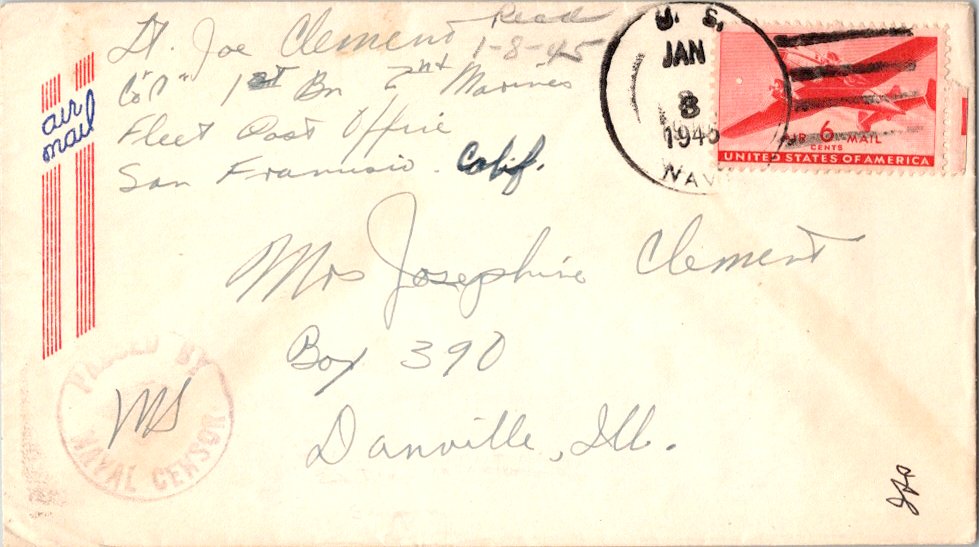 Lt. Joe Clement Read
1-8-45
Co "C" 1st Bn 2nd Marines
Fleet Post Office
San Francisco. Calif.
air
mail
U. S.
JAN
8
1945
NAV
AIR 6 MAIL
CENTS
UNITED STATES OF AMERICA
Mrs Josephine Clement
Box 390
Danville, Ill.
PASSED BY
NAVAL CENSOR